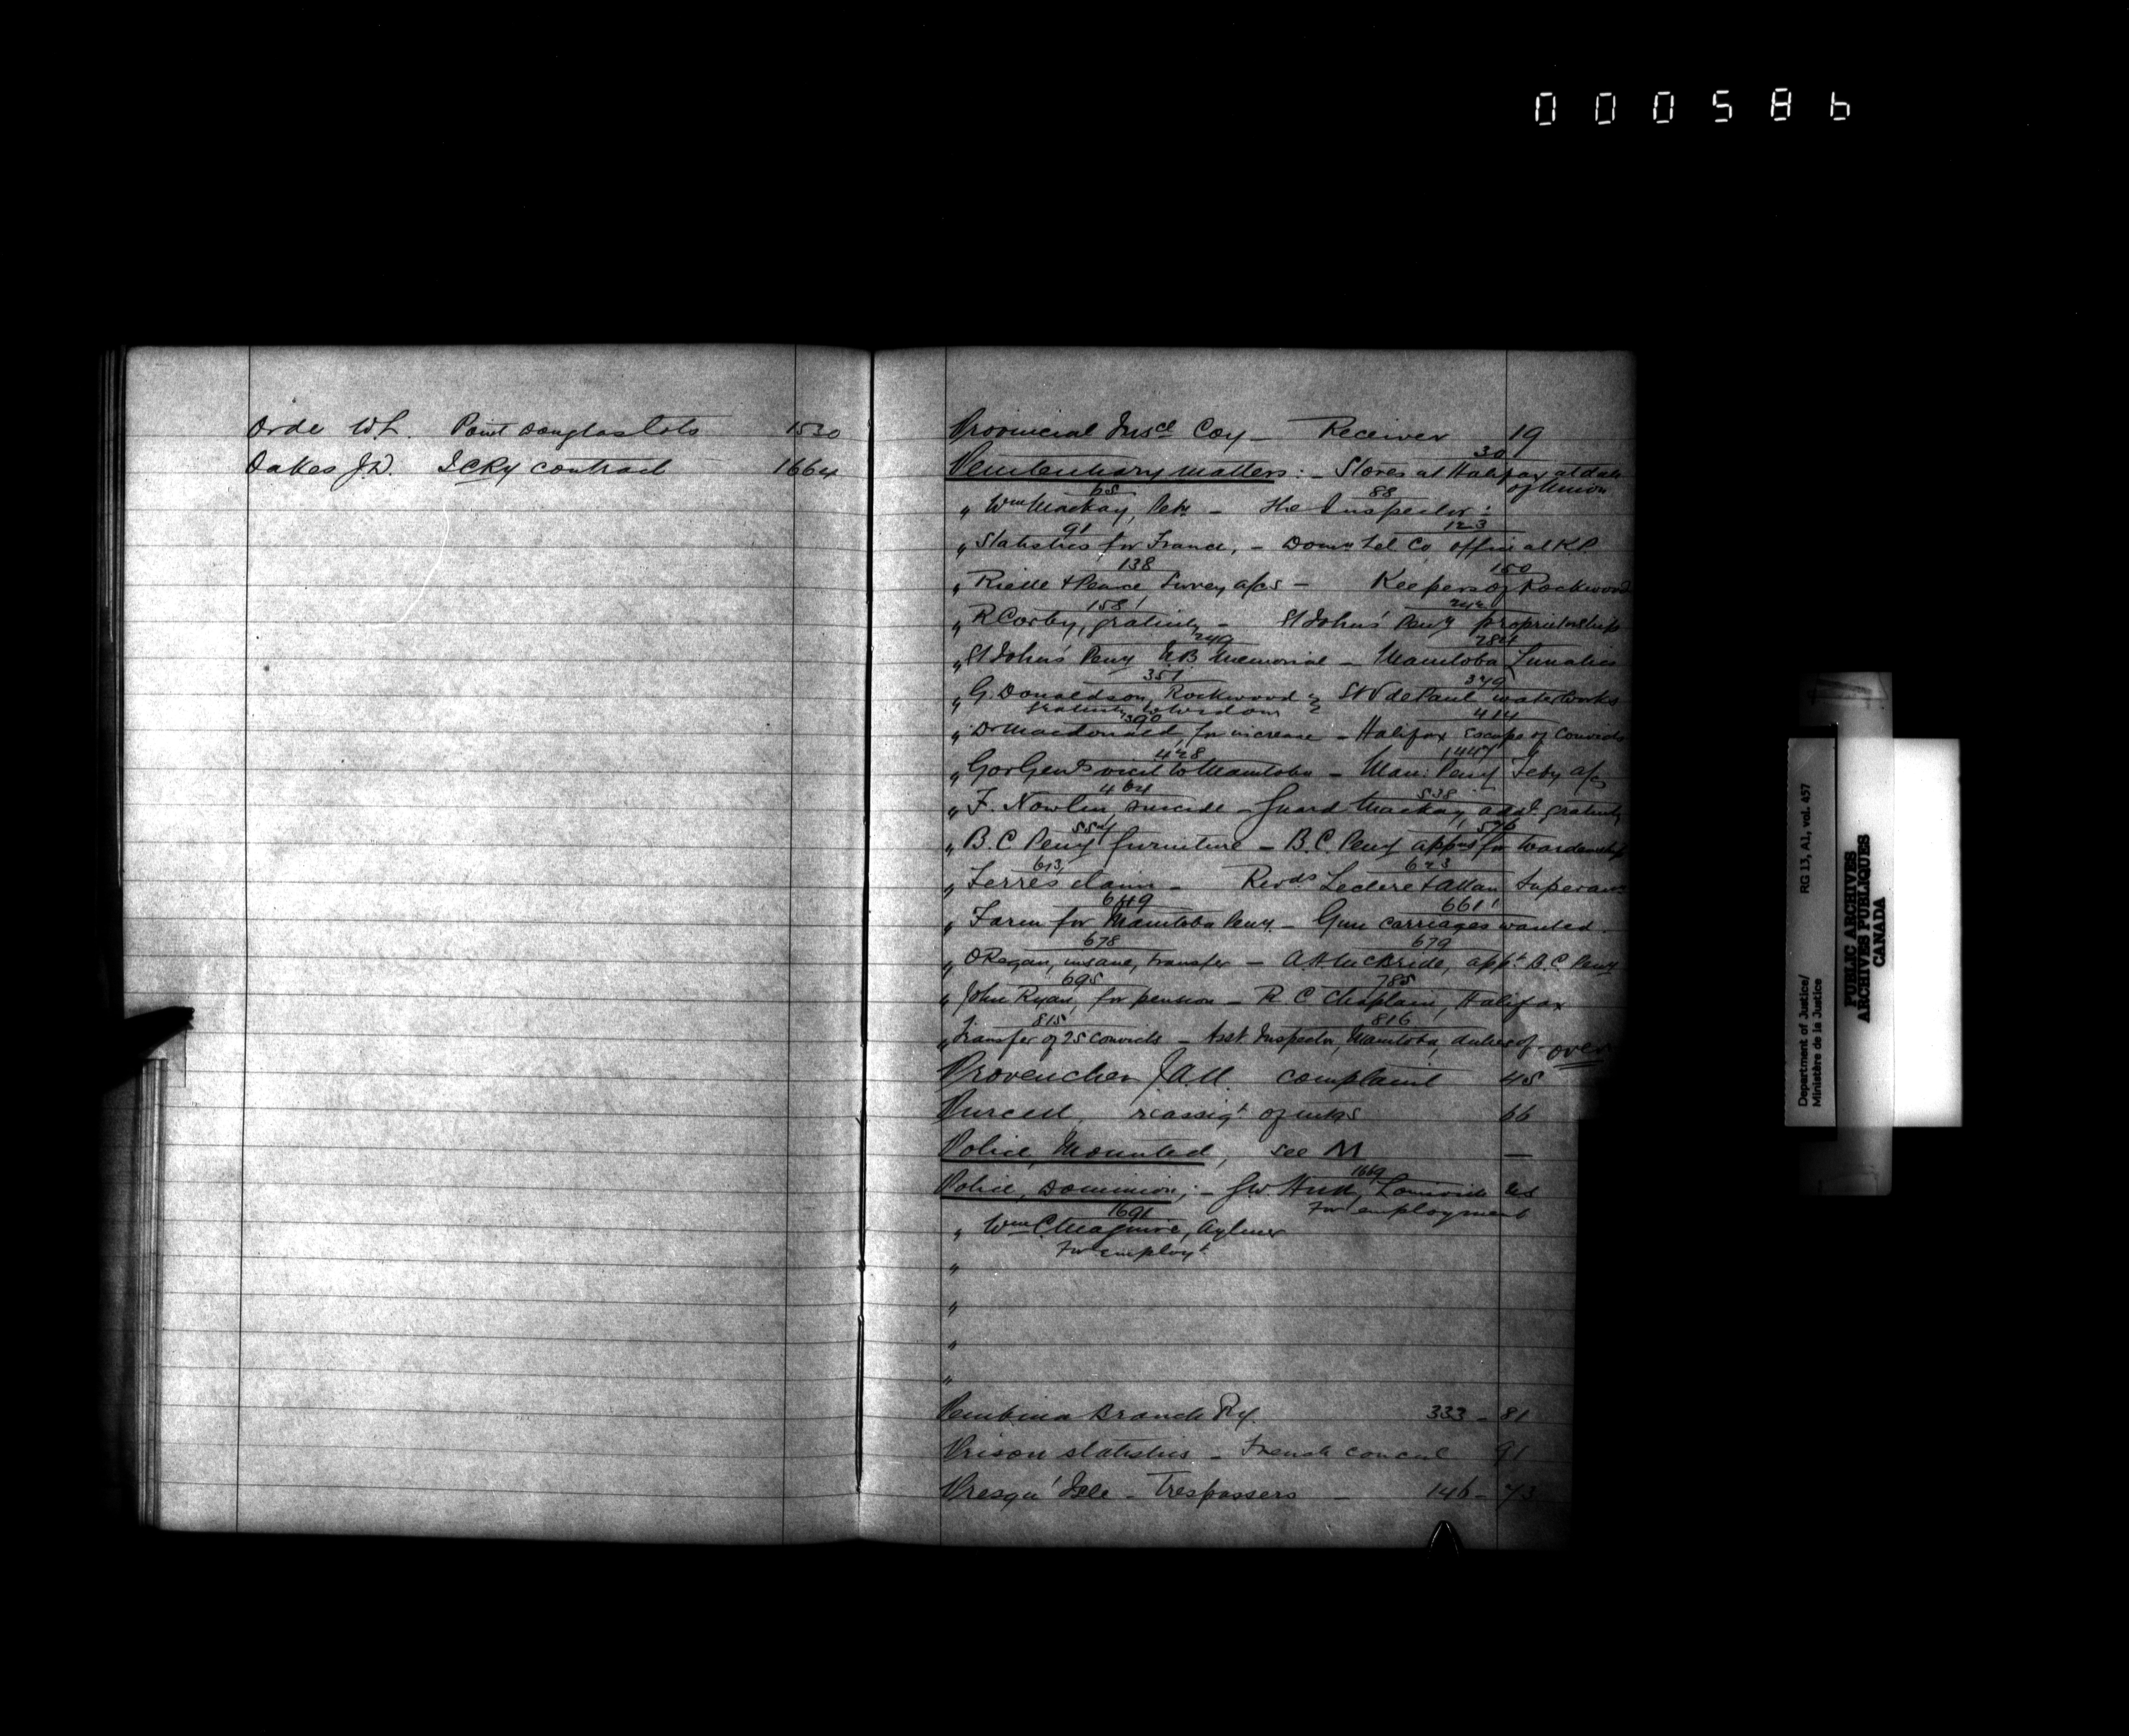 000586
Orde W.L. Point Douglas Lots 1530
Oakes J.D. ICRy contract 1664
Provincial Insce Coy - Receiver 19
30
Penitentiary matters: - Stores at Halifax at date
of Union
65 88
" Wm Mackay, Petn - The Inspector :
91 123
" Statistics for France, - Domn Tel Co office at K.P.
138 150
" Rielle & Pearce Survey a/cs - Keepers of Rockwood
158 242
" R Corby, gratuity - St John's Peny proprietorship
249 284
" St John's Peny N.B. Memorial - Manitoba Lunatics
351 349
" G. Donaldson, Rockwood } St V de Paul waterworks
gratuity to Widow
390 414
" Dr Macdonald, for increase - Halifax Escape of Convicts
428 1447
" Gov Genls visit to Manitoba - Man: Peny Feby a/cs
464 538
" F. Nowlin, suicide - Guard Mackay, addl gratuity
554 576
" B.C. Peny furniture - B.C. Peny appns for Wardenship
613 623
" Ferres claim - Revds Leclerc & Allan Superann
649 661
" Farm for Manitoba Peny. - Gun carriages wanted.
678 679
" O'Regan, insane, transfer - A.H. McBride, appt B.C. Peny
695 785
" John Ryan, for pension - R C Chaplain, Halifax
815 816
" Transfer of 25 convicts - Asst Inspector, Manitoba, duties of - over
Provencher J.A.N. complaint 45
Purcell, reassigt of 66
Police, Mounted, see M —
1669
Police, Dominion; - GW
For employment
1691
" Wm C. Maguire, Aylmer
For employt
"
"
"
"
Pembina Branch Ry. 333 - 81
Prison statistics - French consul 91
Presqu' Isle - Trespassers - 146 - 73
Department of Justice/ RG 13, A1, vol. 457
Ministère de la Justice
PUBLIC ARCHIVES
ARCHIVES PUBLIQUES
CANADA